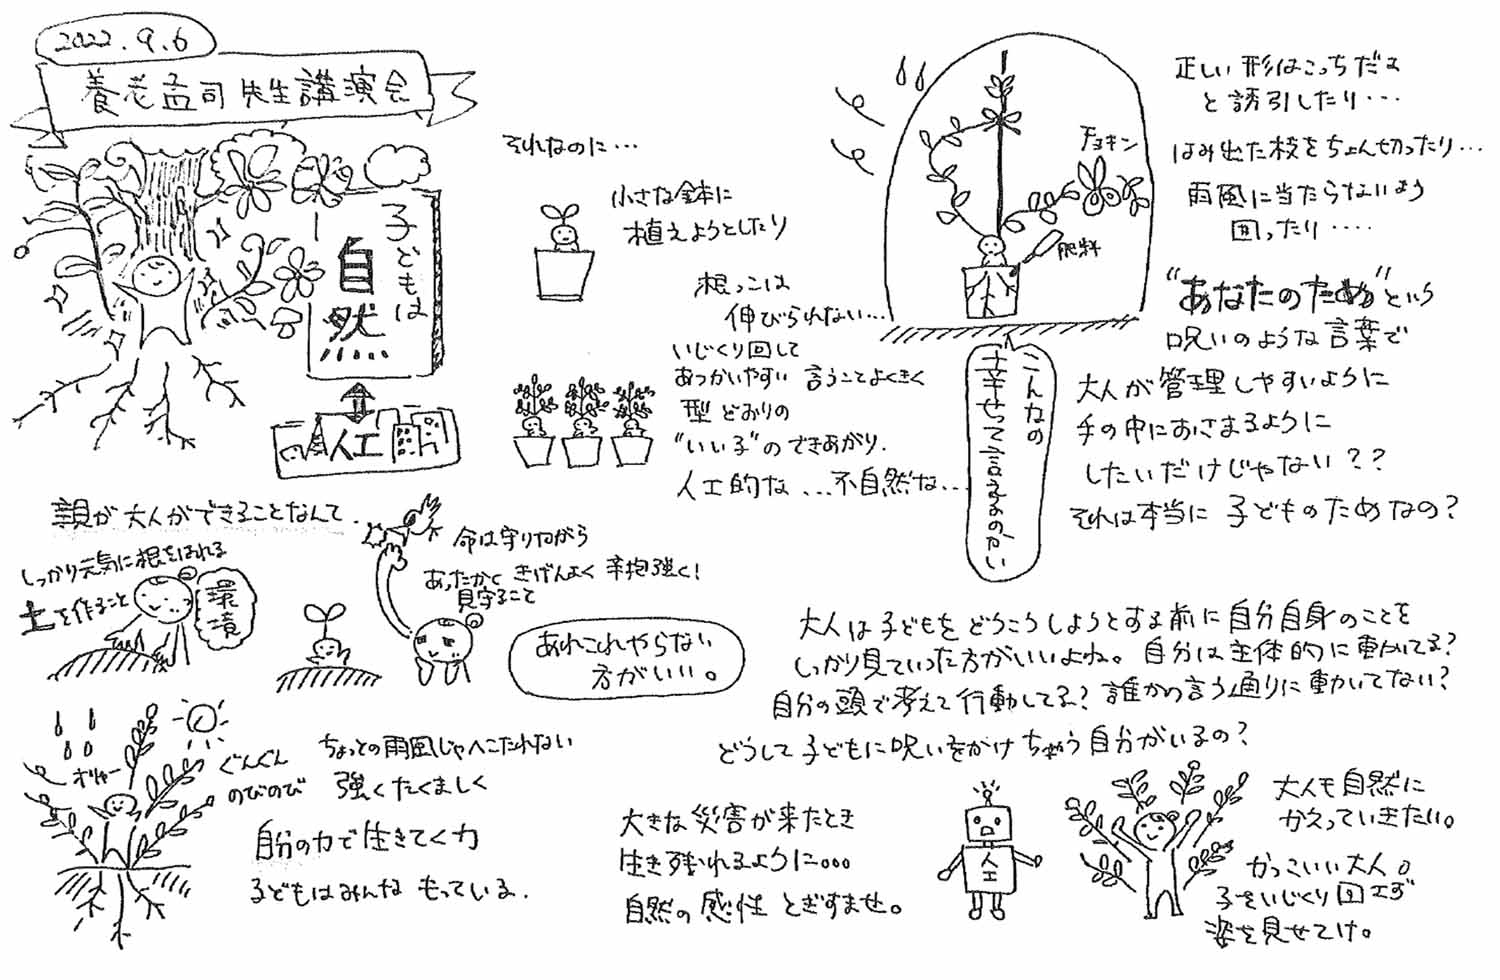 2022.9.6
養老孟司先生講演会
子どもは
自然
人工
それなのに…
小さな鉢に
植えようとしたり
根っこは
伸びられない…
いじくり回して
あつかいやすい 言うことよくきく
型どおりの
"いい子"のできあがり.
人工的な…不自然な…
チョキン
肥料
正しい形はこっちだよ
と誘引したり…
はみ出た枝をちょん切ったり…
雨風に当たらないよう
囲ったり……
"あなたのため"という
呪いのような言葉で
大人が管理しやすいように
手の中におさまるように
したいだけじゃない??
それは本当に子どものためなの?
こんなの
幸せって言えるのかい
親が大人ができることなんて、
しっかり元気に根をはれる
土を作ること
環境
命は守りながら
あったかく きげんよく 辛抱強く!
見守ること
あれこれやらない
方がいい。
オリャー
ぐんぐん
のびのび
ちょっとの雨風じゃへこたれない
強くたくましく
自分の力で生きてく力
子どもはみんなもっている.
大人は子どもをどうこうしようとする前に自分自身のことを
しっかり見ていった方がいいよね。自分は主体的に動いてる?
自分の頭で考えて行動してる?誰かの言う通りに動いてない?
どうして子どもに呪いをかけちゃう自分がいるの?
大きな災害が来たとき
生き残れるように。。。
自然の感性とぎすませ。
人工
大人も自然に
かえっていきたい。
かっこいい大人。
子をいじくり回さず
姿を見せてけ。